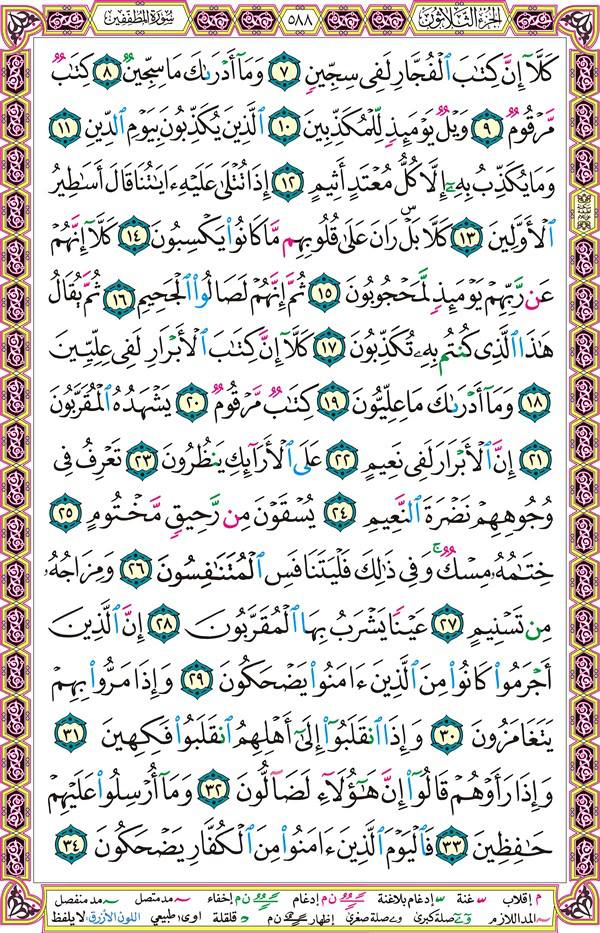 الجزء الثلاثون ٥٨٨ سورة المطففين
كَلَّآ إِنَّ كِتَٰبَ ٱلۡفُجَّارِ لَفِي سِجِّينٖ ٧ وَمَآ أَدۡرَىٰكَ مَا سِجِّينٞ ٨ كِتَٰبٞ
مَّرۡقُومٞ ٩ وَيۡلٞ يَوۡمَئِذٖ لِّلۡمُكَذِّبِينَ ١٠ ٱلَّذِينَ يُكَذِّبُونَ بِيَوۡمِ ٱلدِّينِ ١١
وَمَا يُكَذِّبُ بِهِۦٓ إِلَّا كُلُّ مُعۡتَدٍ أَثِيمٍ ١٢ إِذَا تُتۡلَىٰ عَلَيۡهِ ءَايَٰتُنَا قَالَ أَسَٰطِيرُ
ٱلۡأَوَّلِينَ ١٣ كَلَّاۖ بَلۡۜ رَانَ عَلَىٰ قُلُوبِهِم مَّا كَانُواْ يَكۡسِبُونَ ١٤ كَلَّآ إِنَّهُمۡ
عَن رَّبِّهِمۡ يَوۡمَئِذٖ لَّمَحۡجُوبُونَ ١٥ ثُمَّ إِنَّهُمۡ لَصَالُواْ ٱلۡجَحِيمِ ١٦ ثُمَّ يُقَالُ
هَٰذَا ٱلَّذِي كُنتُم بِهِۦ تُكَذِّبُونَ ١٧ كَلَّآ إِنَّ كِتَٰبَ ٱلۡأَبۡرَارِ لَفِي عِلِّيِّينَ
١٨ وَمَآ أَدۡرَىٰكَ مَا عِلِّيُّونَ ١٩ كِتَٰبٞ مَّرۡقُومٞ ٢٠ يَشۡهَدُهُ ٱلۡمُقَرَّبُونَ
٢١ إِنَّ ٱلۡأَبۡرَارَ لَفِي نَعِيمٍ ٢٢ عَلَى ٱلۡأَرَآئِكِ يَنظُرُونَ ٢٣ تَعۡرِفُ فِي
وُجُوهِهِمۡ نَضۡرَةَ ٱلنَّعِيمِ ٢٤ يُسۡقَوۡنَ مِن رَّحِيقٖ مَّخۡتُومٍ ٢٥
خِتَٰمُهُۥ مِسۡكٞۚ وَفِي ذَٰلِكَ فَلۡيَتَنَافَسِ ٱلۡمُتَنَٰفِسُونَ ٢٦ وَمِزَاجُهُۥ
مِن تَسۡنِيمٍ ٢٧ عَيۡنٗا يَشۡرَبُ بِهَا ٱلۡمُقَرَّبُونَ ٢٨ إِنَّ ٱلَّذِينَ
أَجۡرَمُواْ كَانُواْ مِنَ ٱلَّذِينَ ءَامَنُواْ يَضۡحَكُونَ ٢٩ وَإِذَا مَرُّواْ بِهِمۡ
يَتَغَامَزُونَ ٣٠ وَإِذَا ٱنقَلَبُوٓاْ إِلَىٰٓ أَهۡلِهِمُ ٱنقَلَبُواْ فَكِهِينَ ٣١
وَإِذَا رَأَوۡهُمۡ قَالُوٓاْ إِنَّ هَٰٓؤُلَآءِ لَضَآلُّونَ ٣٢ وَمَآ أُرۡسِلُواْ عَلَيۡهِمۡ
حَٰفِظِينَ ٣٣ فَٱلۡيَوۡمَ ٱلَّذِينَ ءَامَنُواْ مِنَ ٱلۡكُفَّارِ يَضۡحَكُونَ ٣٤
م إقلاب غنة إدغام بلاغنة ن م إدغام ن م إخفاء مد متصل مد منفصل
المد اللازم صلة كبرى صلة صغرى إظهار ن م قلقلة اوى طبيعي اللون الأزرق لا يلفظ